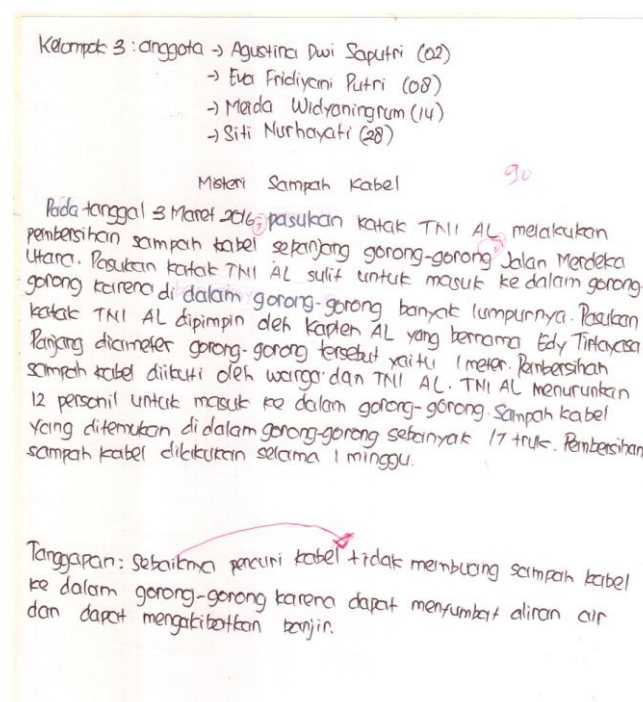 Kelompok 3 : anggota -> Agustina Dwi Saputri (02)
-> Eva Fridiyani Putri (08)
-> Meida Widyaningrum (14)
-> Siti Nurhayati (28)
90
Misteri Sampah Kabel
Pada tanggal 3 Maret 2016, pasukan katak TNI AL melakukan
pembersihan sampah kabel sepanjang gorong-gorong Jalan Merdeka
Utara. Pasukan katak TNI AL sulit untuk masuk ke dalam gorong-
gorong karena di dalam gorong-gorong banyak lumpurnya. Pasukan
katak TNI AL dipimpin oleh Kapten AL yang bernama Edy Tirtayasa
Panjang diameter gorong-gorong tersebut yaitu 1 meter. Pembersihan
sampah kabel diikuti oleh warga dan TNI AL. TNI AL menurunkan
12 personil untuk masuk ke dalam gorong-gorong. Sampah kabel
yang ditemukan di dalam gorong-gorong sebanyak 17 truk. Pembersihan
sampah kabel dilakukan selama 1 minggu.
Tanggapan: Sebaiknya pencuri kabel tidak membuang sampah kabel
ke dalam gorong-gorong karena dapat menyumbat aliran air
dan dapat mengakibatkan banjir.